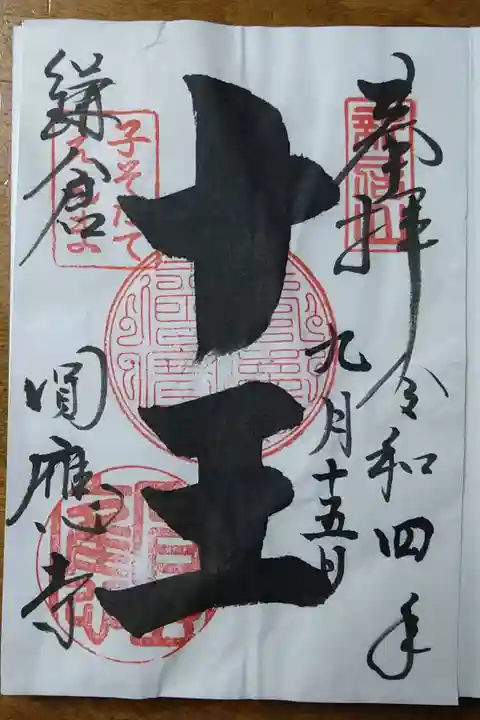 奉拝 令和四年
九月十五日
十王
子そだて
鎌倉 圓應寺